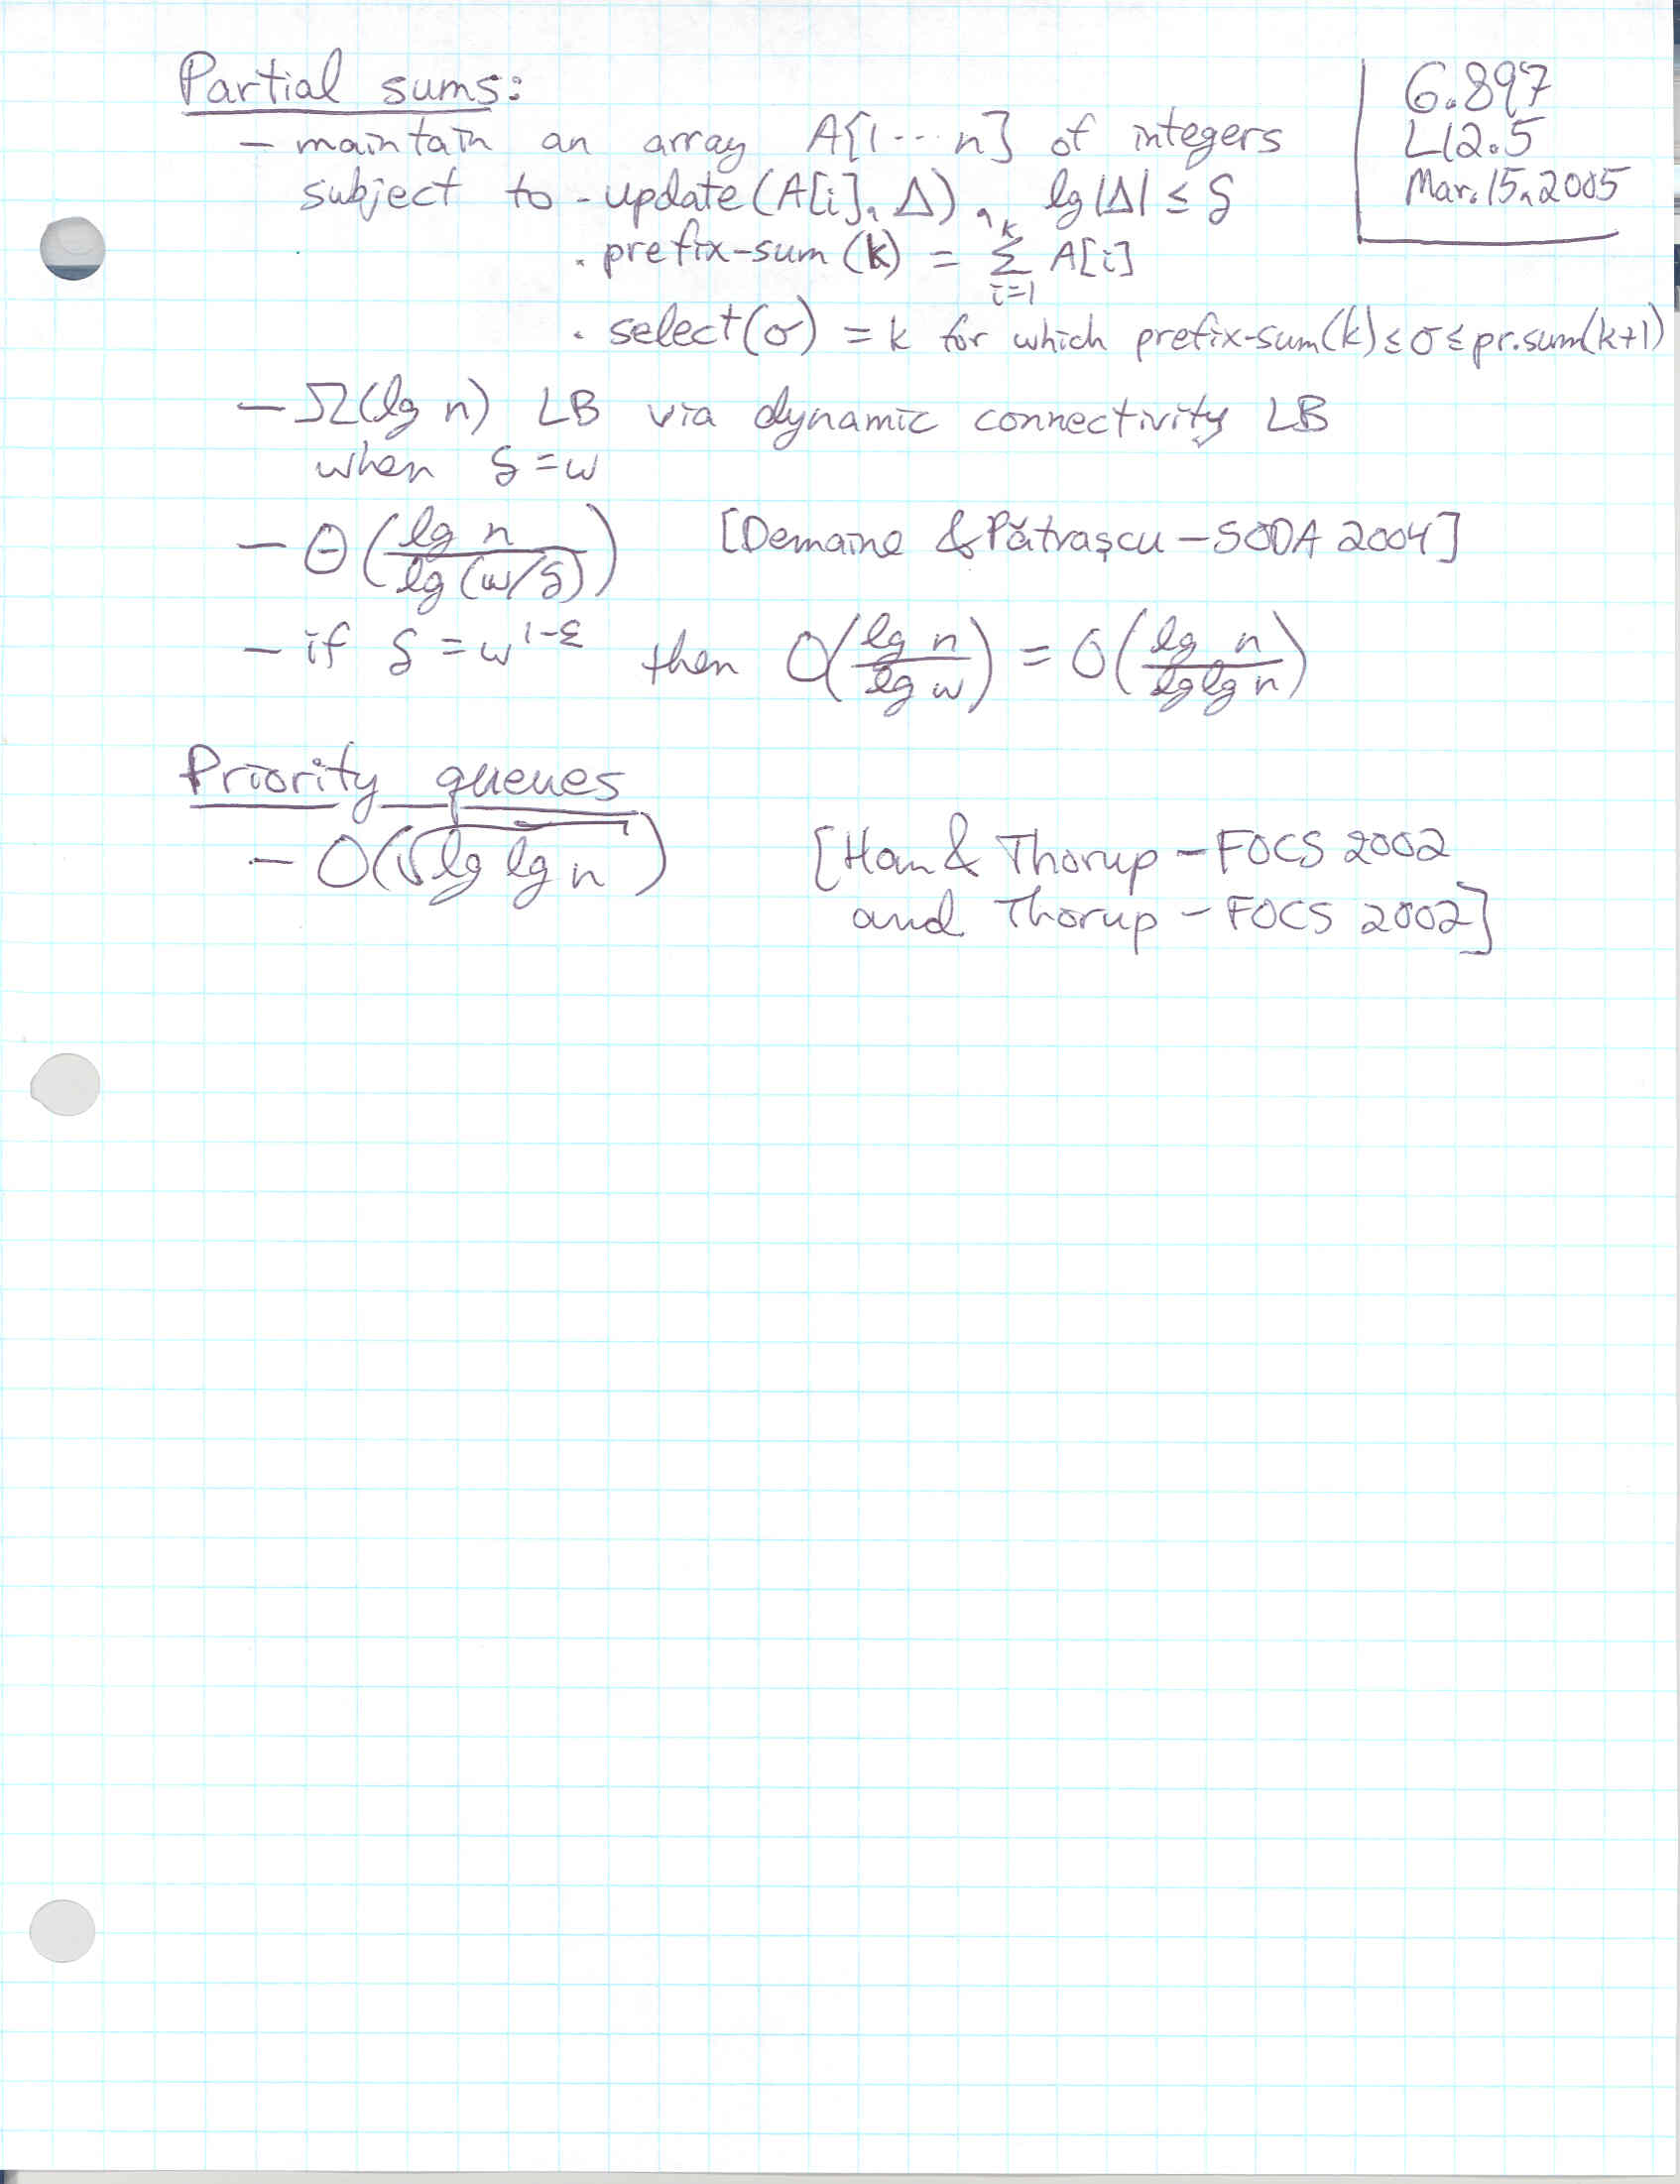 Partial sums:
6.897
L12.5
Mar. 15, 2005
— maintain an array A[1⋯n] of integers
subject to - update(A[i], Δ), lg|Δ| ≤ δ
· prefix-sum(k) = Σ_{i=1}^{k} A[i]
· select(σ) = k for which prefix-sum(k) ≤ σ ≤ pr.sum(k+1)
— Ω(lg n) LB via dynamic connectivity LB
when δ = w
— Θ(lg n / lg(w/δ)) [Demaine & Pǎtraşcu — SODA 2004]
— if δ = w^{1-ε} then O(lg n / lg w) = O(lg n / lglg n)
Priority queues
— O(√lg lg n) [Han & Thorup — FOCS 2002
and Thorup — FOCS 2002]